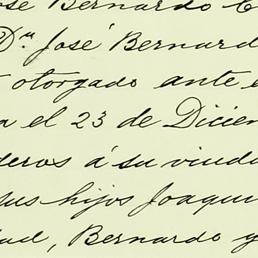 José Bernardo C
Dn José Bernard
otorgado ante e
a el 23 de Diciem
deros á su viuda
sus hijos Joaqui
dad, Bernardo y